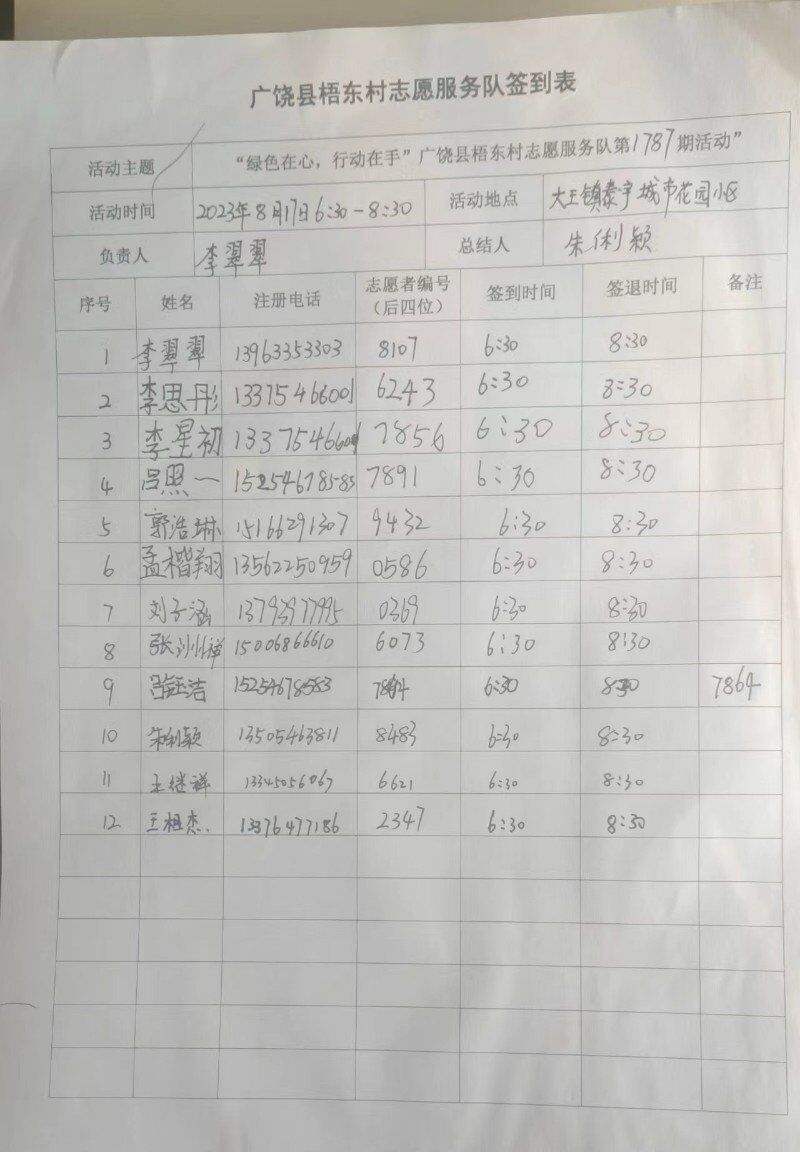 广饶县梧东村志愿服务队签到表
活动主题 “绿色在心，行动在手”广饶县梧东村志愿服务队第1787期活动”
活动时间 2023年8月17日6:30-8:30 活动地点 大王镇泰宇城市花园小区
负责人 李翠翠 总结人 朱俐颖
序号 姓名 注册电话 志愿者编号（后四位） 签到时间 签退时间 备注
1 李翠翠 13963353303 8107 6:30 8:30
2 李思彤 13375466001 6243 6:30 8:30
3 李星初 13375466001 7856 6:30 8:30
4 吕照一 15254678583 7891 6:30 8:30
5 郭浩琳 15166291307 9432 6:30 8:30
6 孟楷翔 13562250959 0586 6:30 8:30
7 刘子涵 13793977995 0369 6:30 8:30
8 张洲祥 15006866610 6073 6:30 8:30
9 吕钰洁 15254678583 6:30 8:30 7864
10 朱俐颖 13505463811 8483 6:30 8:30
11 王继祥 13345056067 6621 6:30 8:30
12 王祖杰 13376477186 2347 6:30 8:30